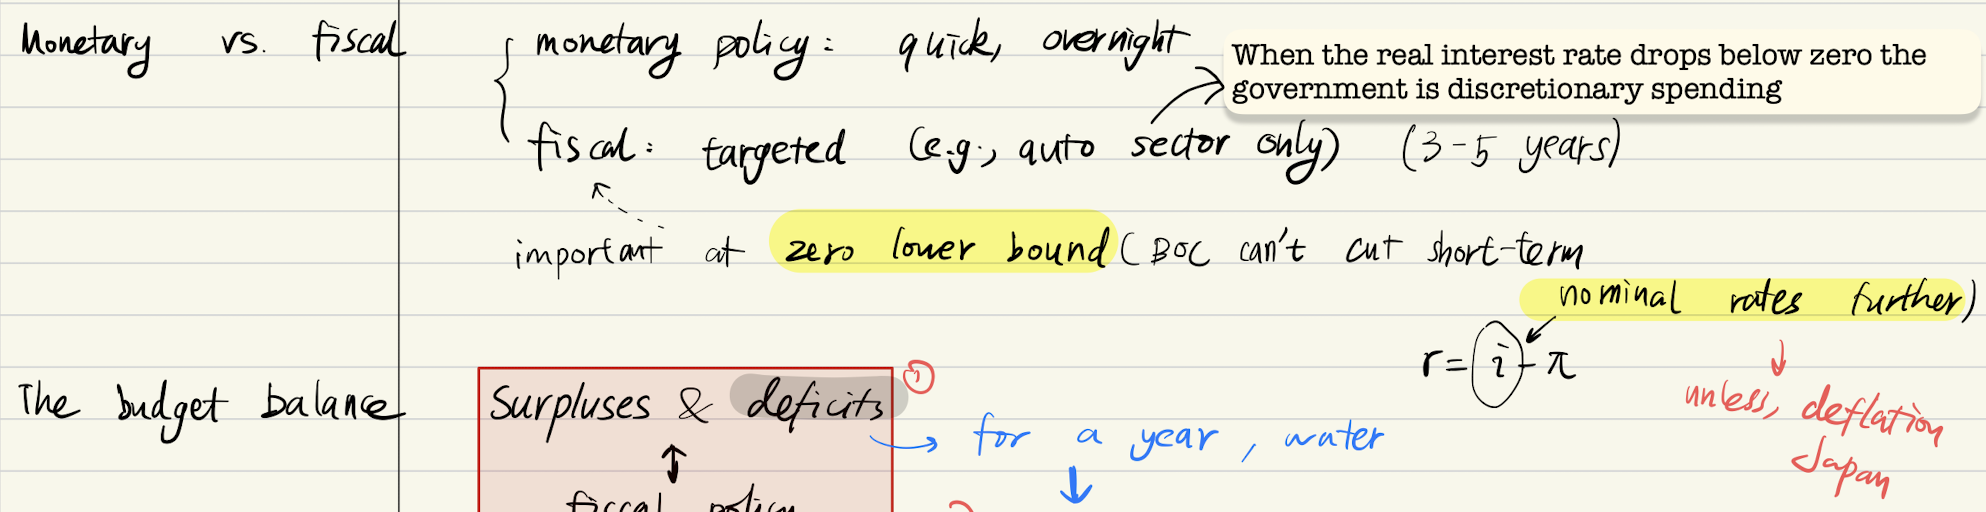 Monetary vs. fiscal
monetary policy: quick, overnight
When the real interest rate drops below zero the
government is discretionary spending
fiscal: targeted (e.g., auto sector only) (3-5 years)
important at zero lower bound (BOC can't cut short-term
nominal rates further)
r = i - π
unless, deflation
Japan
The budget balance
Surpluses & deficits
①
for a year, water
fiscal policy